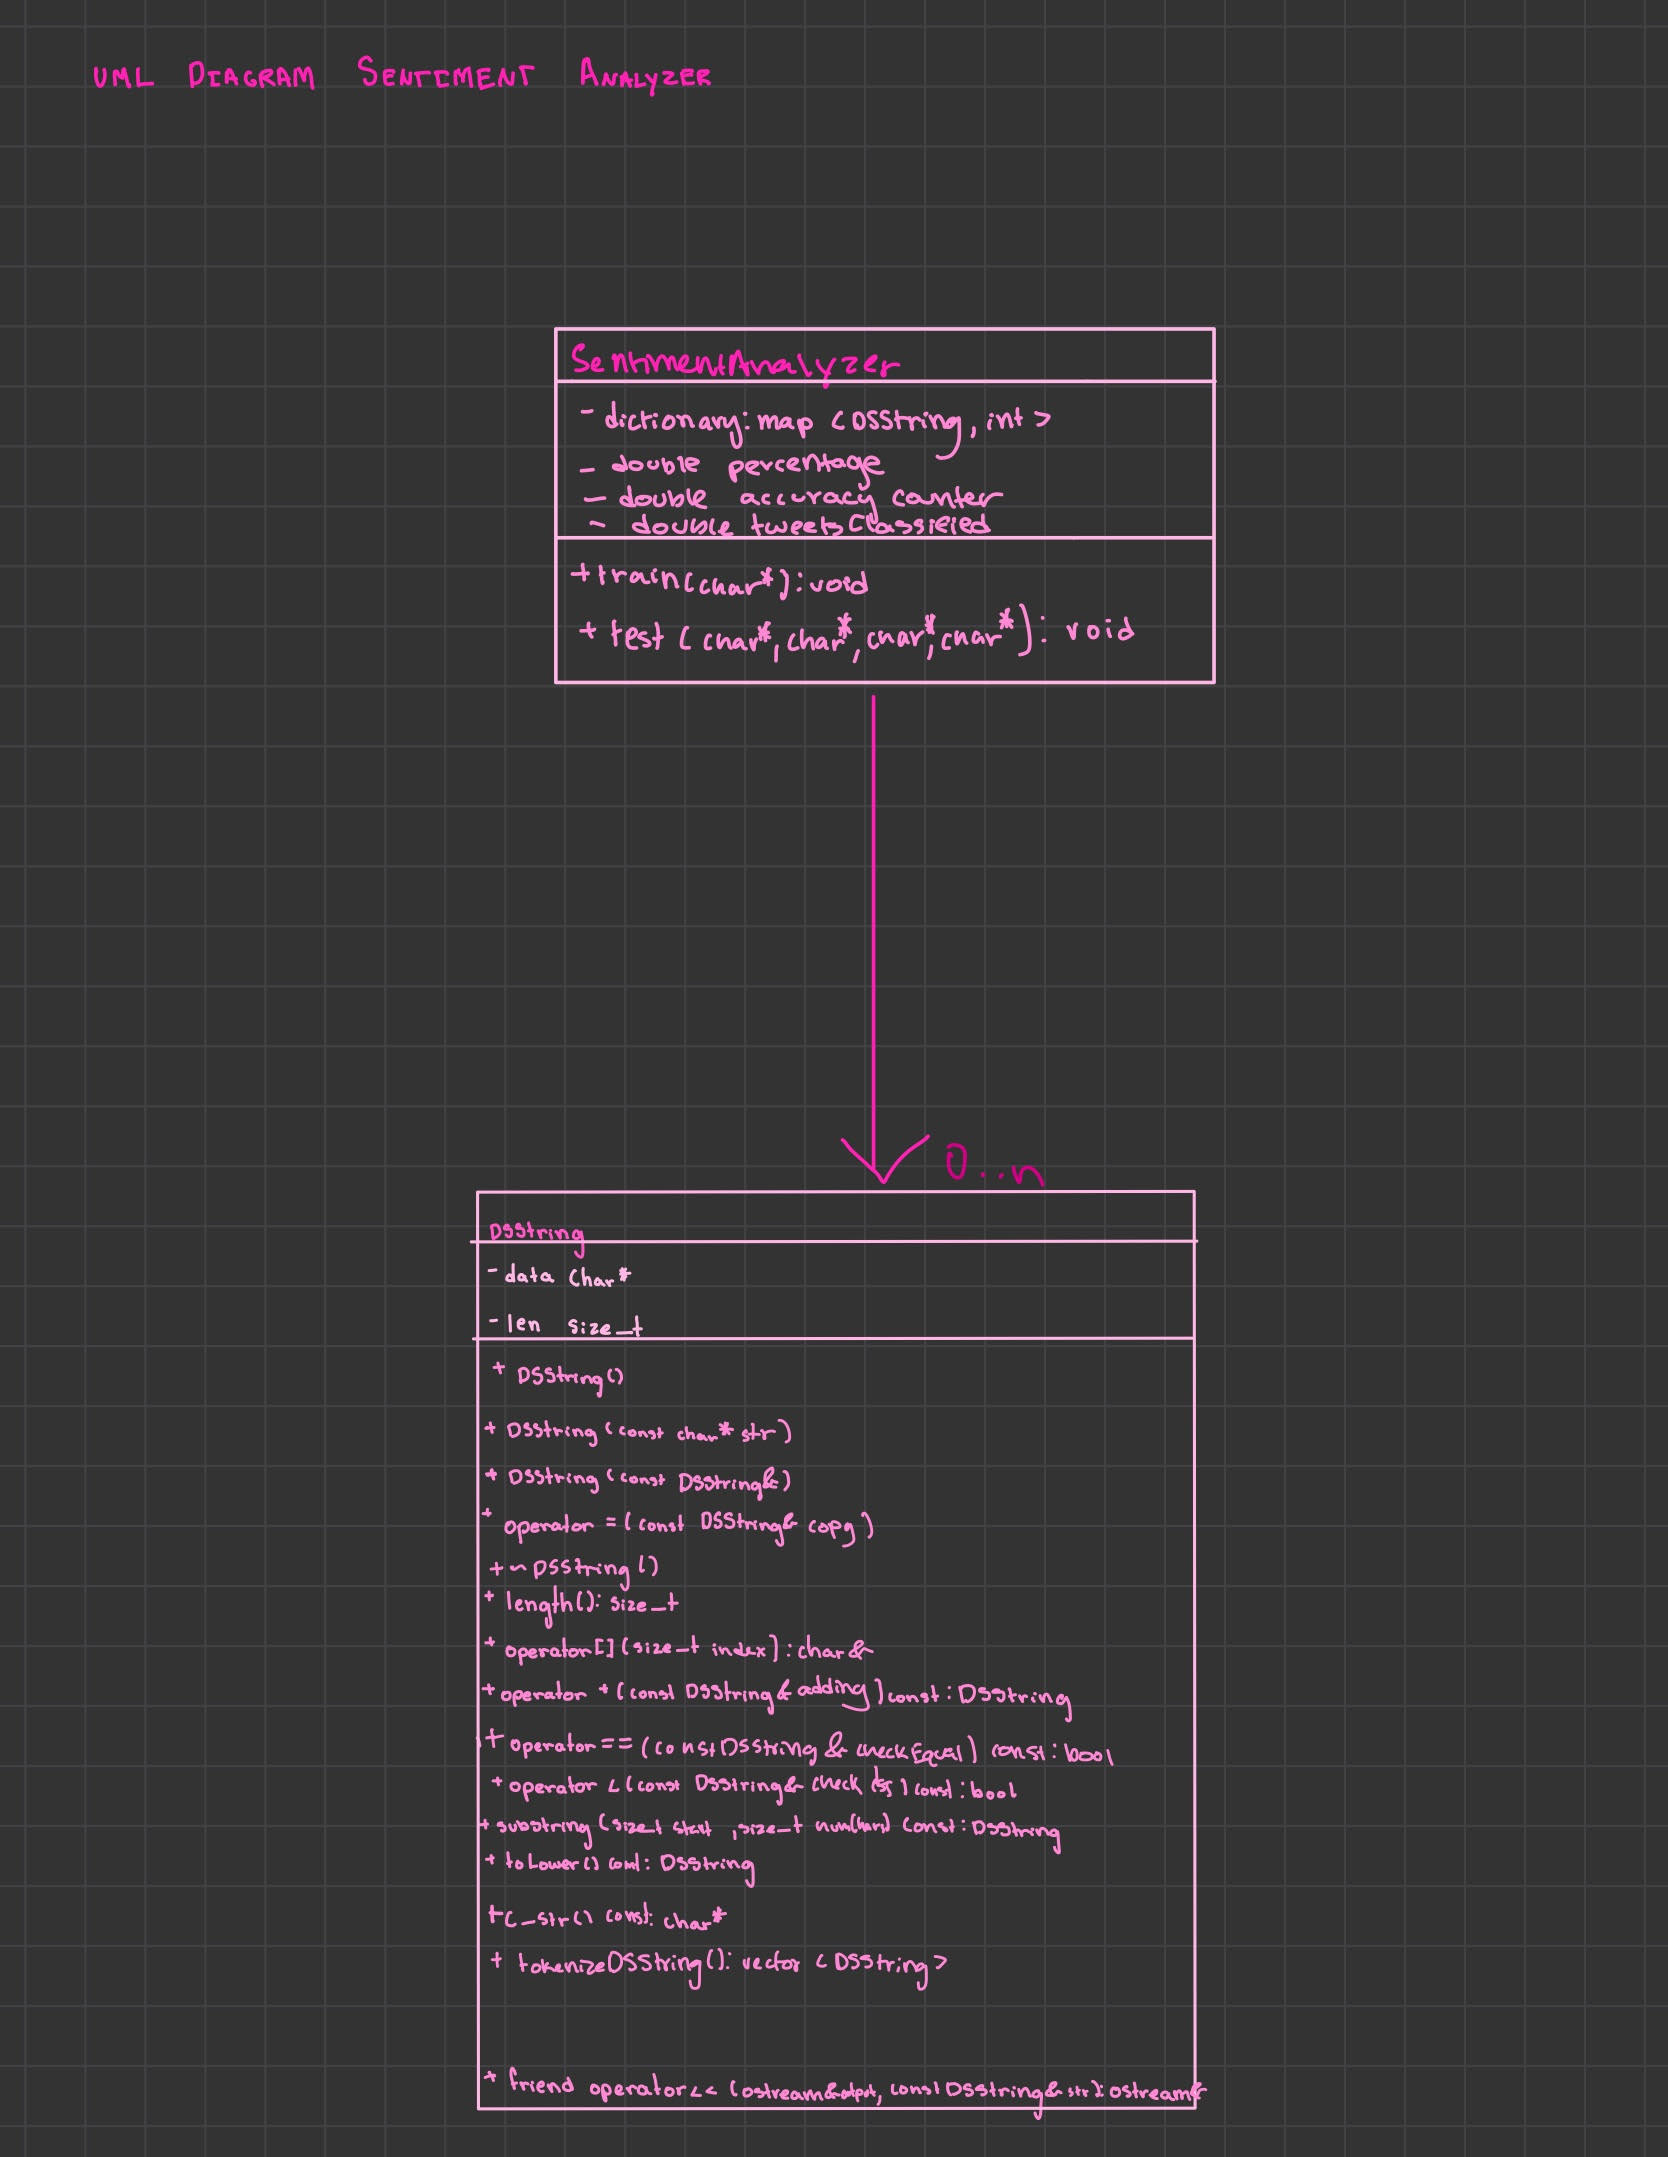 UML DIAGRAM SENTIMENT ANALYZER
SentimentAnalyzer
- dictionary: map <DSString, int>
- double percentage
- double accuracy counter
- double tweetsClassified
+ train(char*): void
+ test (char*, char*, char*, char*): void
0..n
DSString
- data char*
- len size_t
+ DSString()
+ DSString (const char* str)
+ DSString (const DSString&)
+ operator = (const DSString& copy)
+ ~DSString()
+ length(): size_t
+ operator[] (size_t index): char&
+ operator + (const DSString& adding) const: DSString
+ operator== (const DSString & checkEqual) const: bool
+ operator < (const DSString& check) const: bool
+ substring (size_t start, size_t numChars) const: DSString
+ toLower() const: DSString
+ c_str() const: char*
+ tokenizeDSString(): vector <DSString>
+ friend operator<< (ostream& output, const DSString& str): ostream&